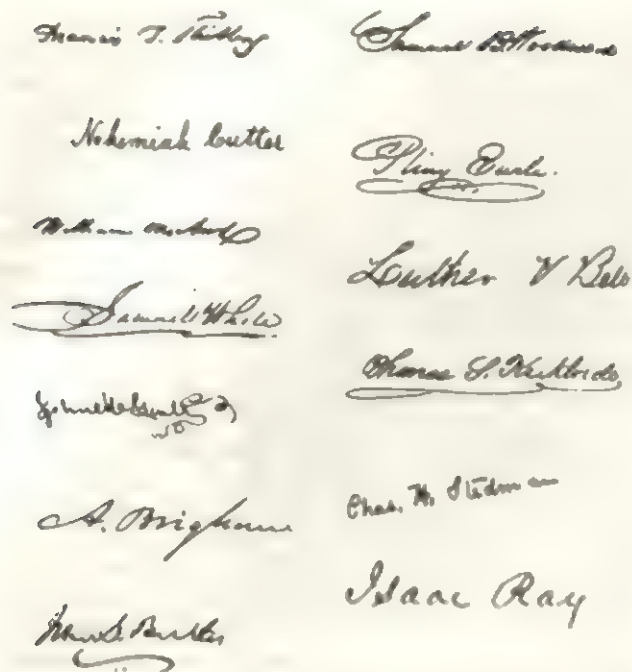 Francis T. Stribling
Nehemiah Cutter
William M. Awl
Samuel White
A. Brigham
John S. Butler
Samuel B. Woodward
Pliny Earle.
Luther V Bell
Thomas S. Kirkbride
Chas. H. Stedman
Isaac Ray